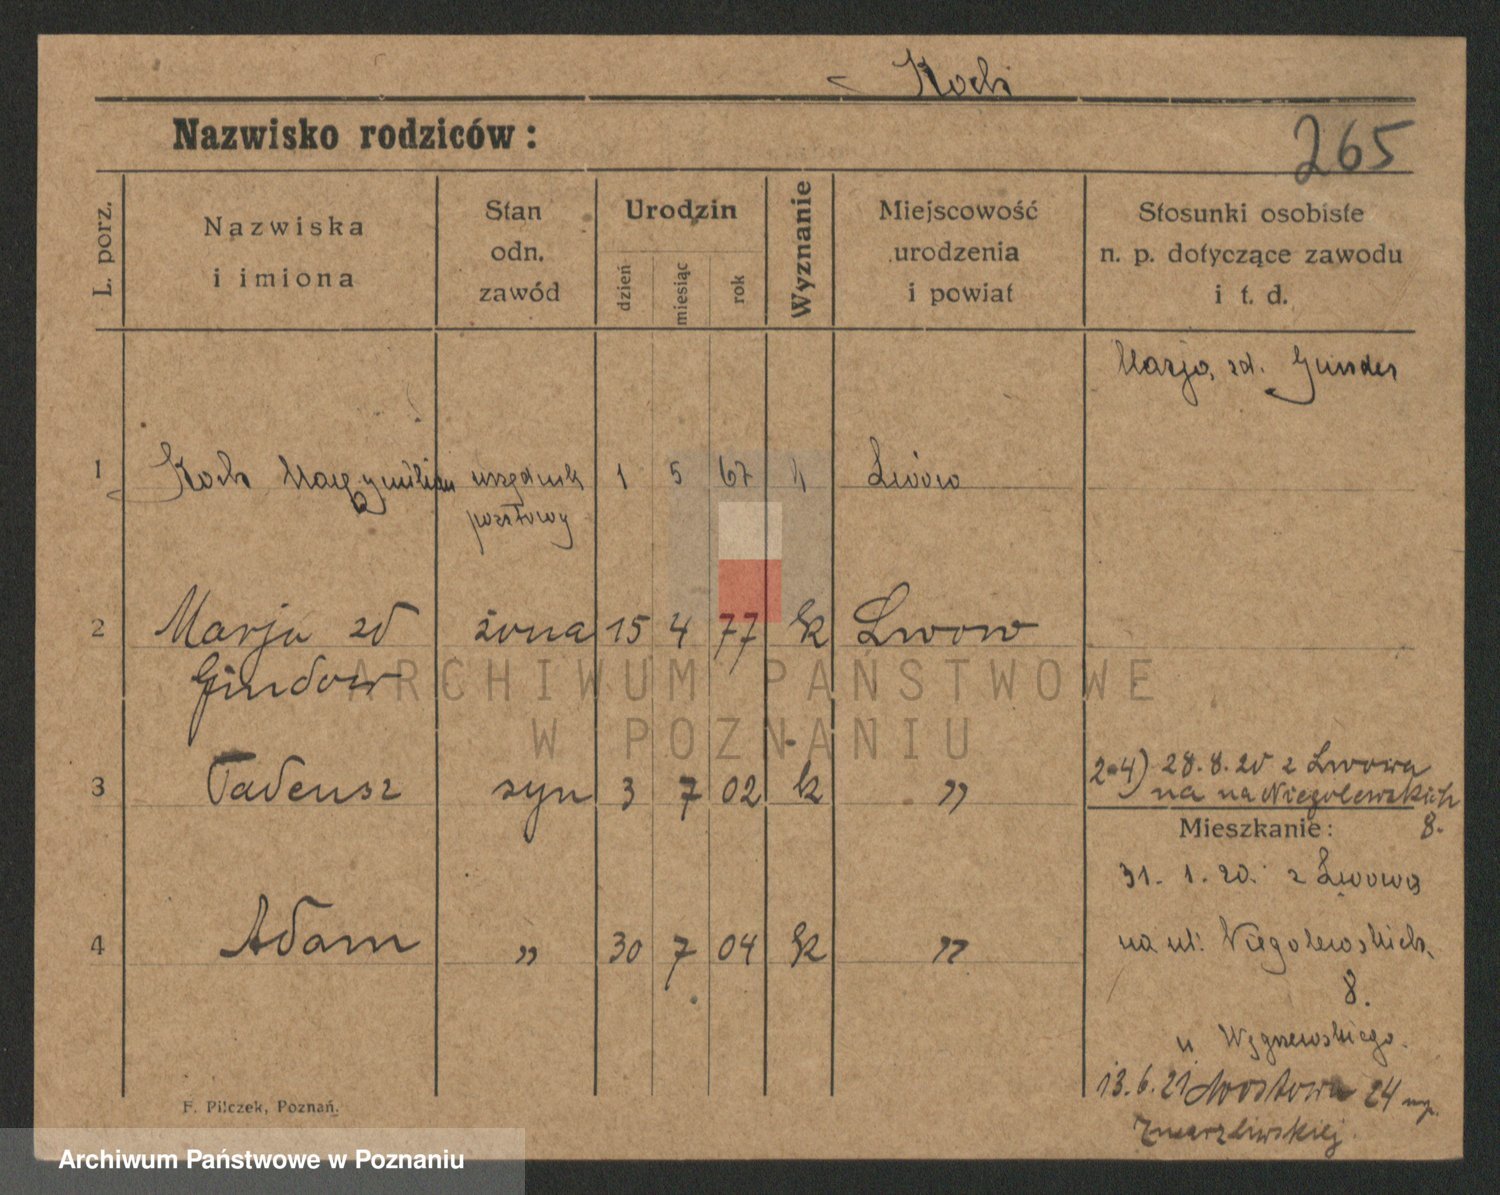 Koch
Nazwisko rodziców:
265
L. porz.
Nazwiska
i imiona
Stan
odn.
zawód
Urodzin
dzień
miesiąc
rok
Wyznanie
Miejscowość
urodzenia
i powiat
Stosunki osobiste
n. p. dotyczące zawodu
i t. d.
Marja, zd. Gunder
1 Koch Maxymilian urzędnik 1 5 67 k Lwów
pocztowy
2 Marja zd żona 15 4 77 k Lwow
Gindoer
ARCHIWUM PAŃSTWOWE
W POZNANIU
3 Tadeusz syn 3 7 02 k "
2-4) 28.8.20 z Lwowa
na na Niegolewskich
8.
Mieszkanie:
31. 1. 20. z Lwowa
4 Adam " 30 7 04 k "
na ul: Niegolewskich
8.
u
13.6.21 Mostowa 24
F. Pilczek, Poznań.
Archiwum Państwowe w Poznaniu